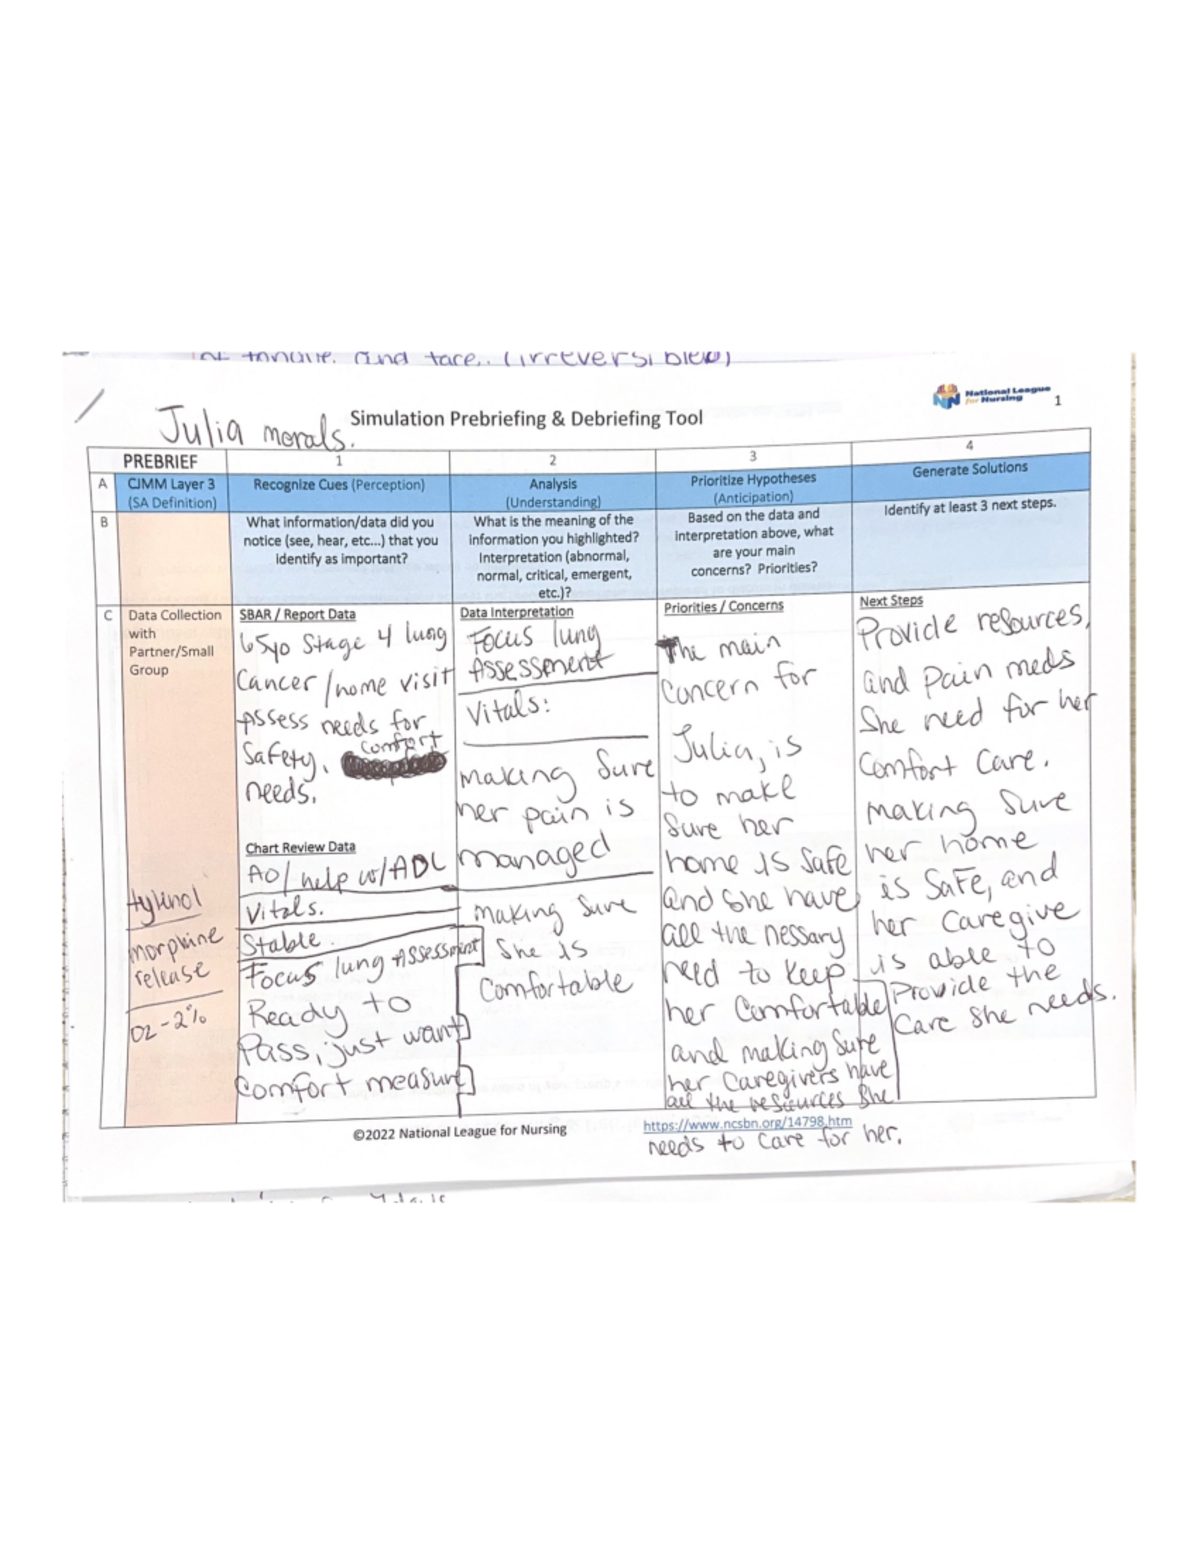 and face. (irreversible)
National League
for Nursing
1
Julia morals.
Simulation Prebriefing & Debriefing Tool
PREBRIEF
1
2
3
4
A
CJMM Layer 3
(SA Definition)
Recognize Cues (Perception)
Analysis
(Understanding)
Prioritize Hypotheses
(Anticipation)
Generate Solutions
B
What information/data did you
notice (see, hear, etc...) that you
identify as important?
What is the meaning of the
information you highlighted?
Interpretation (abnormal,
normal, critical, emergent,
etc.)?
Based on the data and
interpretation above, what
are your main
concerns? Priorities?
Identify at least 3 next steps.
C
Data Collection
with
Partner/Small
Group
Tylenol
morphine
release
O2-2%
SBAR / Report Data
65yo Stage 4 lung
Cancer/home visit
Assess needs for
Safety, comfort
needs.
Chart Review Data
AO/help w/ADL
Vitals.
Stable
Focus lung Assessment
Ready to
Pass, just want
comfort measure
Data Interpretation
Focus lung
Assessment
Vitals:
making Sure
her pain is
managed
making Sure
She is
Comfortable
Priorities / Concerns
The main
concern for
Julia, is
to make
Sure her
home is Safe
and She have
all the nessary
need to keep
her Comfortable
and making Sure
her Caregivers have
all the resources She
needs to Care for her.
Next Steps
Provide resources,
and Pain meds
She need for her
Comfort Care.
making Sure
her home
is Safe, and
her Caregive
is able to
Provide the
Care She needs.
©2022 National League for Nursing
https://www.ncsbn.org/14798.htm